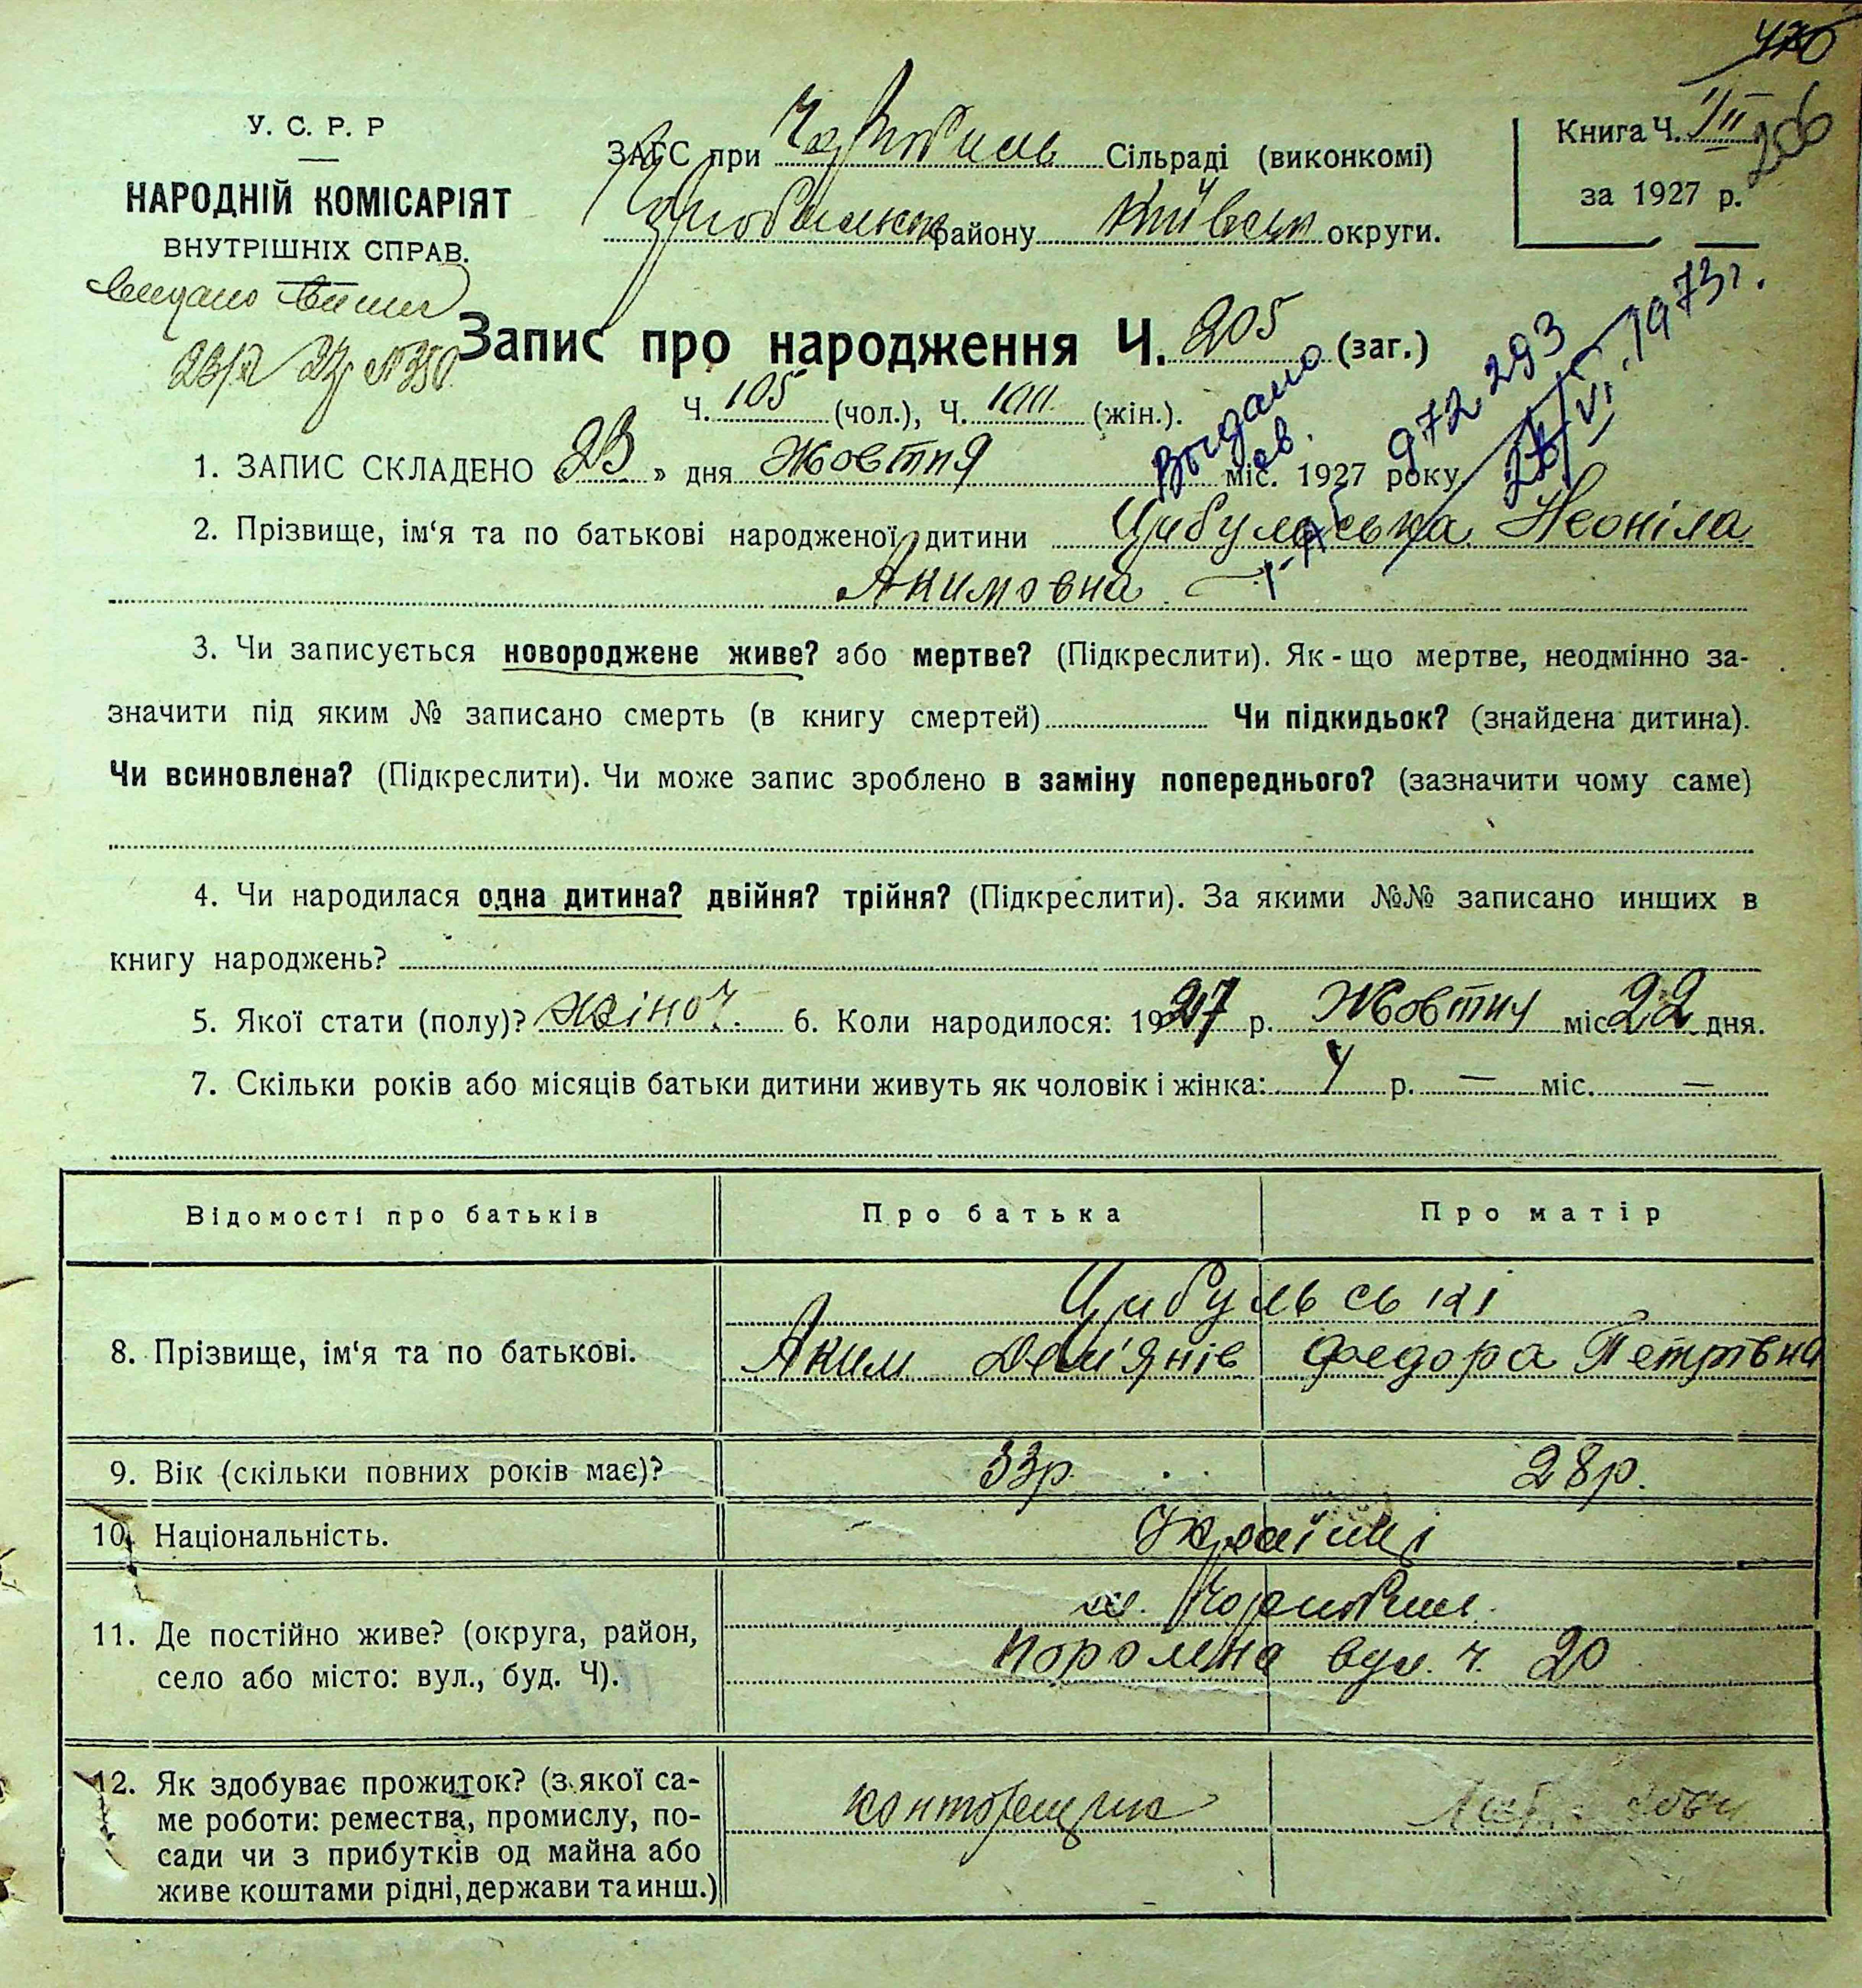 У. С. Р. Р
НАРОДНІЙ КОМІСАРІЯТ
ВНУТРІШНІХ СПРАВ.
ЗАГС при Чорнобиль Сільраді (виконкомі)
району Київськ округи.
Книга Ч. III
за 1927 р.
206
Запис про народження Ч. 205 (заг.)
Ч. 105 (чол.), Ч. 100 (жін.).
Выдано
св.
972 293
VI. 1973 г.
1. ЗАПИС СКЛАДЕНО « 23 » дня Жовтня міс. 1927 року
2. Прізвище, ім‘я та по батькові народженої дитини Цибульська Неоніла
Акимовна
3. Чи записується новороджене живе? або мертве? (Підкреслити). Як-що мертве, неодмінно за-
значити під яким № записано смерть (в книгу смертей) Чи підкидьок? (знайдена дитина).
Чи всиновлена? (Підкреслити). Чи може запис зроблено в заміну попереднього? (зазначити чому саме)
4. Чи народилася одна дитина? двійня? трійня? (Підкреслити). За якими №№ записано инших в
книгу народжень?
5. Якої стати (полу)? жіноч. 6. Коли народилося: 1927 р. Жовтня міс. 22 дня.
7. Скільки років або місяців батьки дитини живуть як чоловік і жінка: 4 р. — міс. —
Відомості про батьків Про батька Про матір
8. Прізвище, ім‘я та по батькові.
Цибульські
Аким Дем'янів Федора Петрівна
9. Вік (скільки повних років має)? 33р. 28р.
10. Національність. Українці
11. Де постійно живе? (округа, район,
село або місто: вул., буд. Ч).
м. Чорнобиль
вул. ч. 20
12. Як здобуває прожиток? (з якої са-
ме роботи: ремества, промислу, по-
сади чи з прибутків од майна або
живе коштами рідні, держави та инш.)
конторщик